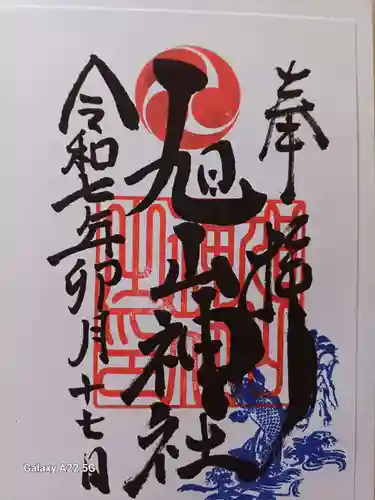 奉拝
旭山神社
令和七年卯月十七日
Galaxy A22 5G